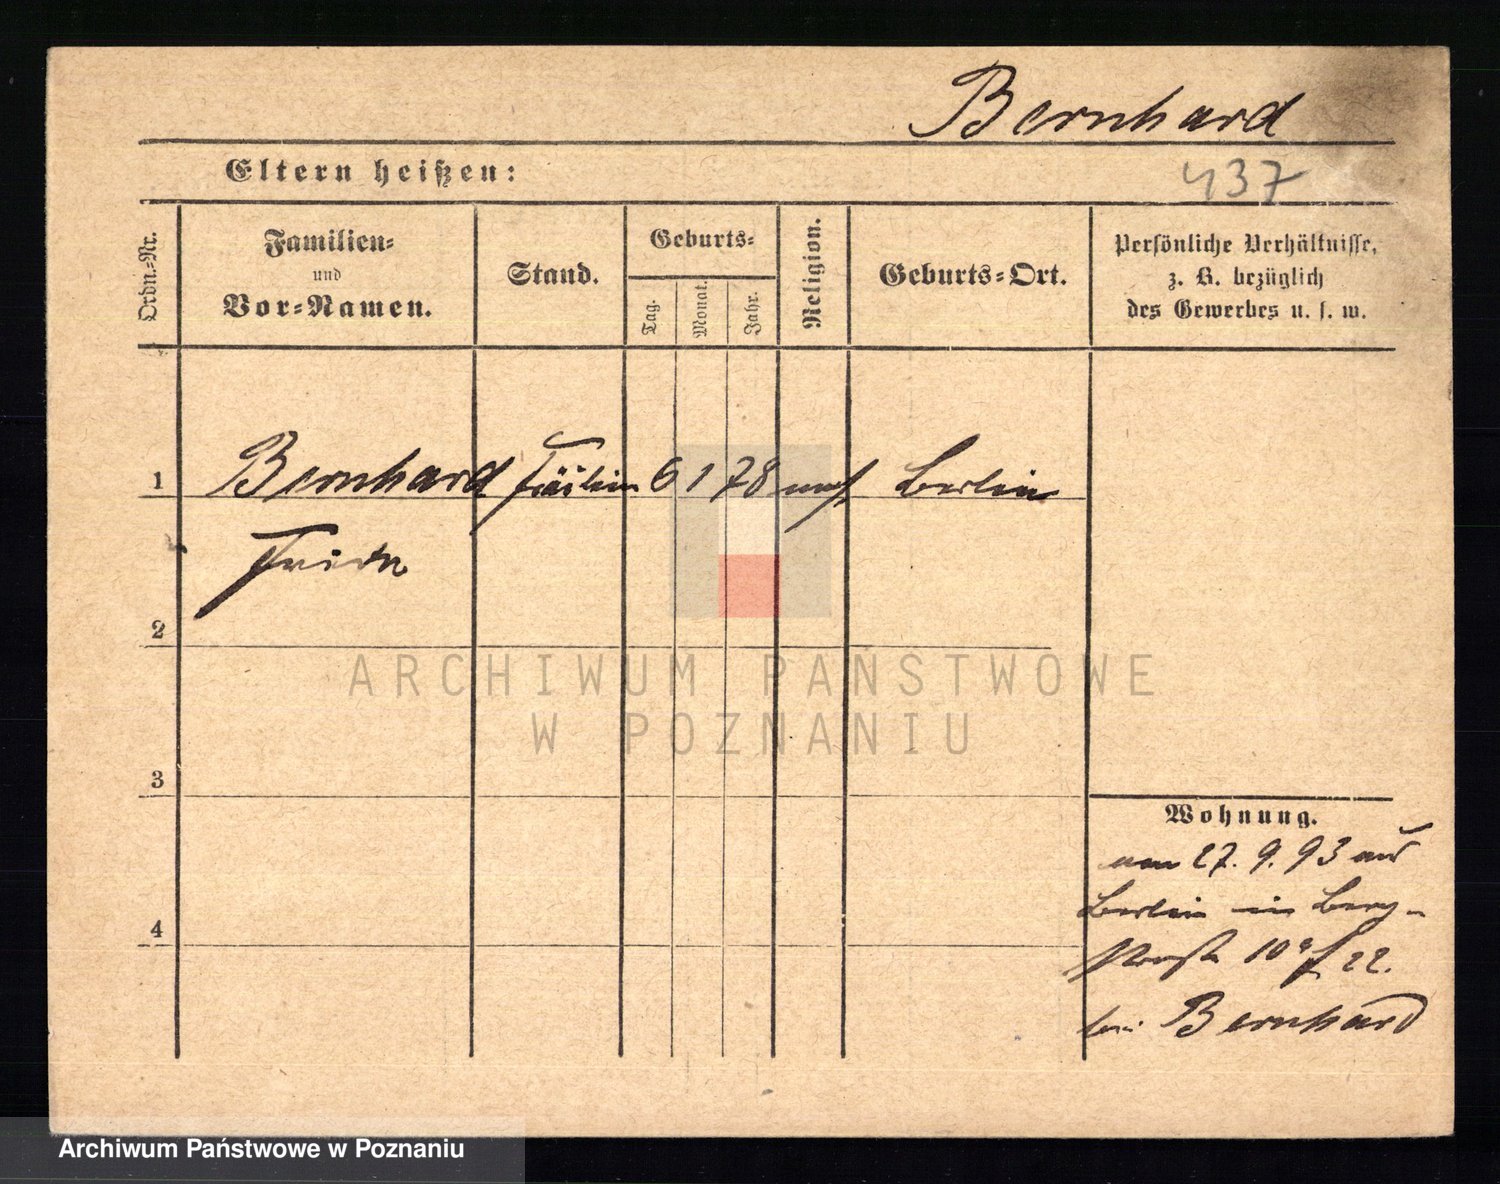 Bernhard
Eltern heißen:
437
Ordn.-Nr.
Familien-
und
Vor-Namen.
Stand.
Geburts-
Tag.
Monat.
Jahr.
Religion.
Geburts-Ort.
Persönliche Verhältnisse,
z. B. bezüglich
des Gewerbes u. s. w.
1 Bernhard Fräulein 6 1 78 Berlin
2
3
4
ARCHIWUM PAŃSTWOWE
W POZNANIU
Wohnung.
am 27. 9. 93 aus
Berlin in Berg-
22.
bei Bernhard
Archiwum Państwowe w Poznaniu